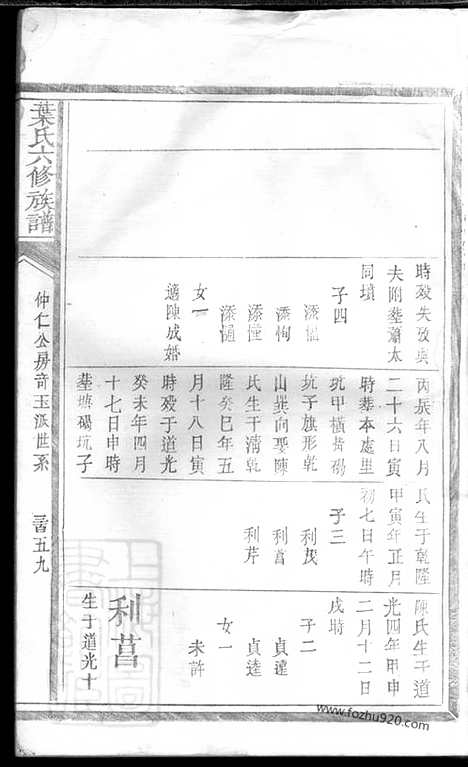 時殁失攷與
夫附葬蕭太
同墳
子四
添恂
添憧
女一
適陳成婚
丙辰年八月
二十六日寅
時葬本處里
坑甲橫黃碭
坑子旗形乾
山巽向娶陳
氏生于淸乾
隆癸巳年五
月十八日寅
時殁于道光
癸未年四月
十七日申時
葬塘碭坑子
氏生于乾隆
甲寅年正月
初七日午時
子三
利茂
利莒
利芹
陳氏生于道
光四年甲申
二月十二日
戌時
子二
貞蓮
貞逵
女一
未許
利莒
生于道光十
葉氏六修族譜
仲仁公房奇玉派世系
五九
www.fozhu920.com